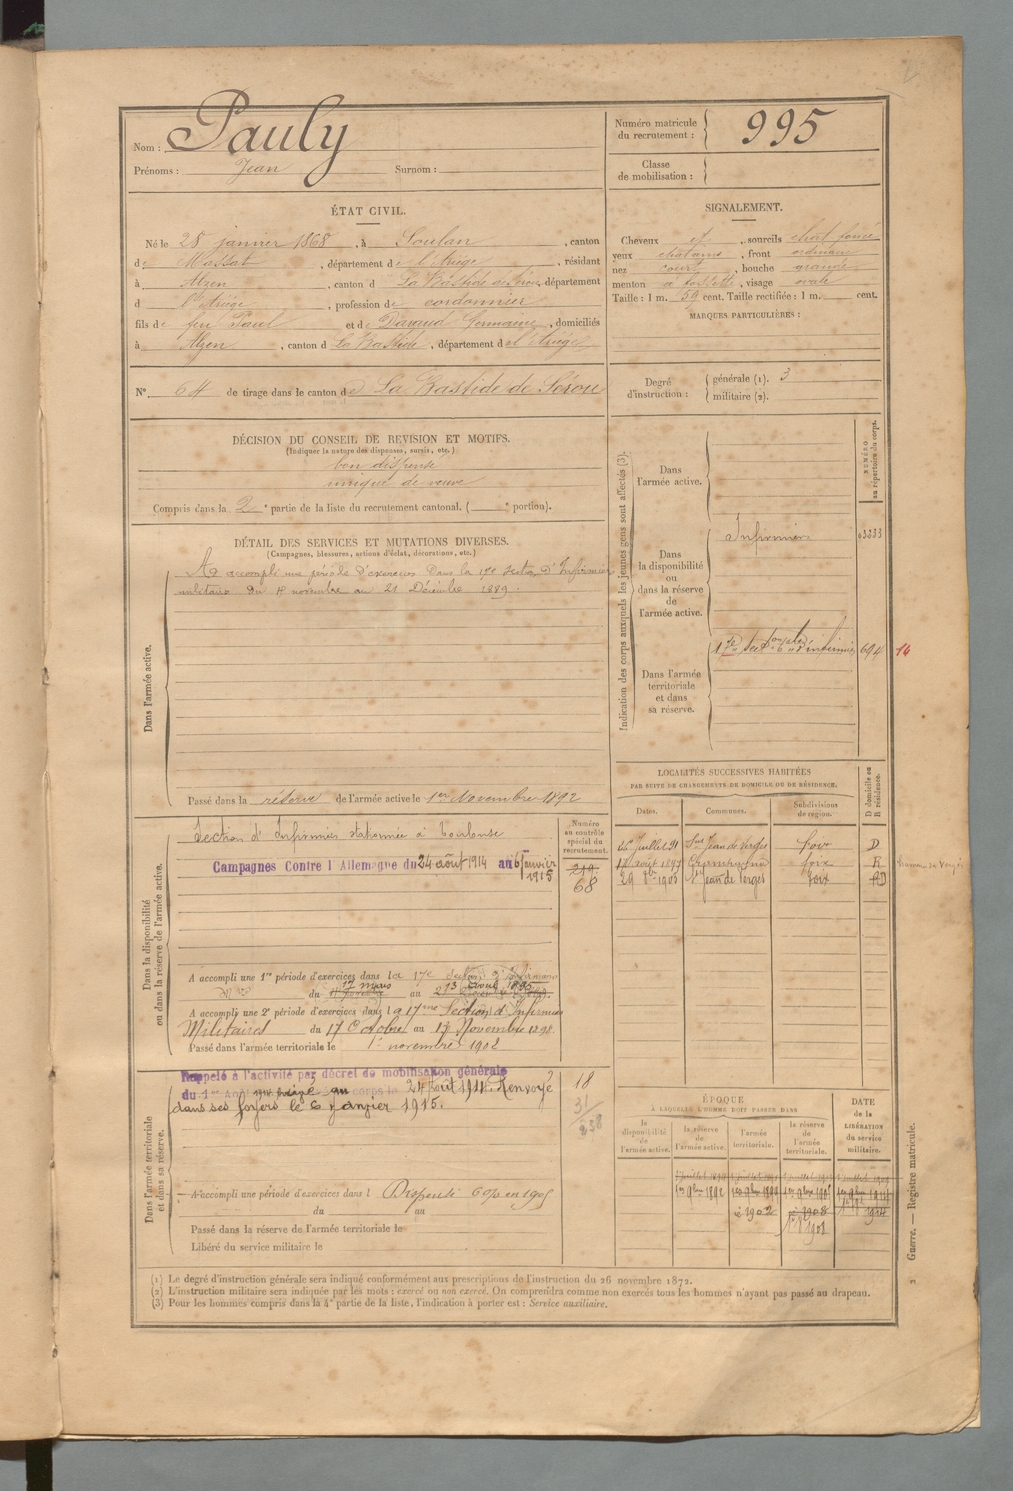 Nom : Pauly
Prénoms : Jean Surnom :
Numéro matricule du recrutement : 995
Classe de mobilisation :
ÉTAT CIVIL.
Né le 28 janvier 1868, à Soulan, canton
de Massat, département de l'Ariège, résidant
à Alzen, canton d La Bastide de Sérou, département
d l'Ariège, profession de cordonnier
fils de feu Paul et de Germaine, domiciliés
à Alzen, canton d La Bastide, département de l'Ariège
N° 64 de tirage dans le canton de La Bastide de Sérou
SIGNALEMENT.
Cheveux et, sourcils chat foncé
yeux chatains, front ordinaire
nez court, bouche grande
menton à fossette, visage ovale
Taille : 1 m. 59 cent. Taille rectifiée : 1 m. cent.
MARQUES PARTICULIÈRES :
Degré d'instruction : générale (1). 3
militaire (2).
DÉCISION DU CONSEIL DE REVISION ET MOTIFS.
(Indiquer la nature des dispenses, sursis, etc.)
bon dispensé
unique de veuve
Compris dans la 2e partie de la liste du recrutement cantonal. ( e portion).
DÉTAIL DES SERVICES ET MUTATIONS DIVERSES.
(Campagnes, blessures, actions d'éclat, décorations, etc.)
Dans l'armée active.
A accompli une période d'exercices dans la 17e Section d'Infirmiers
militaires du 4 novembre au 21 Décembre 1889.
Passé dans la réserve de l'armée active le 1er Novembre 1892
Indication des corps auxquels les jeunes gens sont affectés (3).
NUMÉRO au répertoire du corps.
Dans l'armée active.
Dans la disponibilité ou dans la réserve de l'armée active.
Infirmiers 3333
Dans l'armée territoriale et dans sa réserve.
d'infirmiers 694 14
LOCALITÉS SUCCESSIVES HABITÉES
PAR SUITE DE CHANGEMENTS DE DOMICILE OU DE RÉSIDENCE.
Dates. Communes. Subdivisions de région. D domicile ou R résidence.
26 Juillet 91 St Jean de Verges foix D
août 1897 foix R
29 1903 St Jean de Verges Foix RD
Dans la disponibilité ou dans la réserve de l'armée active.
Numéro au contrôle spécial du recrutement.
219
68
Section d'Infirmiers stationnée à Toulouse
Campagnes Contre l'Allemagne du 24 août 1914 au 6 Janvier 1915
A accompli une 1re période d'exercices dans la 17e Section d'Infirmiers
du 17 mars au 13 avril 1895
A accompli une 2e période d'exercices dans la 17me Section d'Infirmiers
Militaires du 17 Octobre au 13 Novembre 1898
Passé dans l'armée territoriale le 1er novembre 1902
Dans l'armée territoriale et dans sa réserve.
Rappelé à l'activité par décret de mobilisation générale
du 1er Août 1914. Arrivé au corps le 24 Août 1914. Renvoyé
dans ses foyers le 6 janvier 1915.
18
31
338
A accompli une période d'exercices dans l Dispensé 1905
du au
Passé dans la réserve de l'armée territoriale le
Libéré du service militaire le
ÉPOQUE
À LAQUELLE L'HOMME DOIT PASSER DANS
la disponibilité de l'armée active.
la réserve de l'armée active.
l'armée territoriale.
la réserve de l'armée territoriale.
DATE de la LIBÉRATION du service militaire.
1er 9bre 1892
1902
1908
1914
(1) Le degré d'instruction générale sera indiqué conformément aux prescriptions de l'instruction du 26 novembre 1872.
(2) L'instruction militaire sera indiquée par les mots : exercé ou non exercé. On comprendra comme non exercés tous les hommes n'ayant pas passé au drapeau.
(3) Pour les hommes compris dans la 4e partie de la liste, l'indication à porter est : Service auxiliaire.
2 Guerre. — Registre matricule.